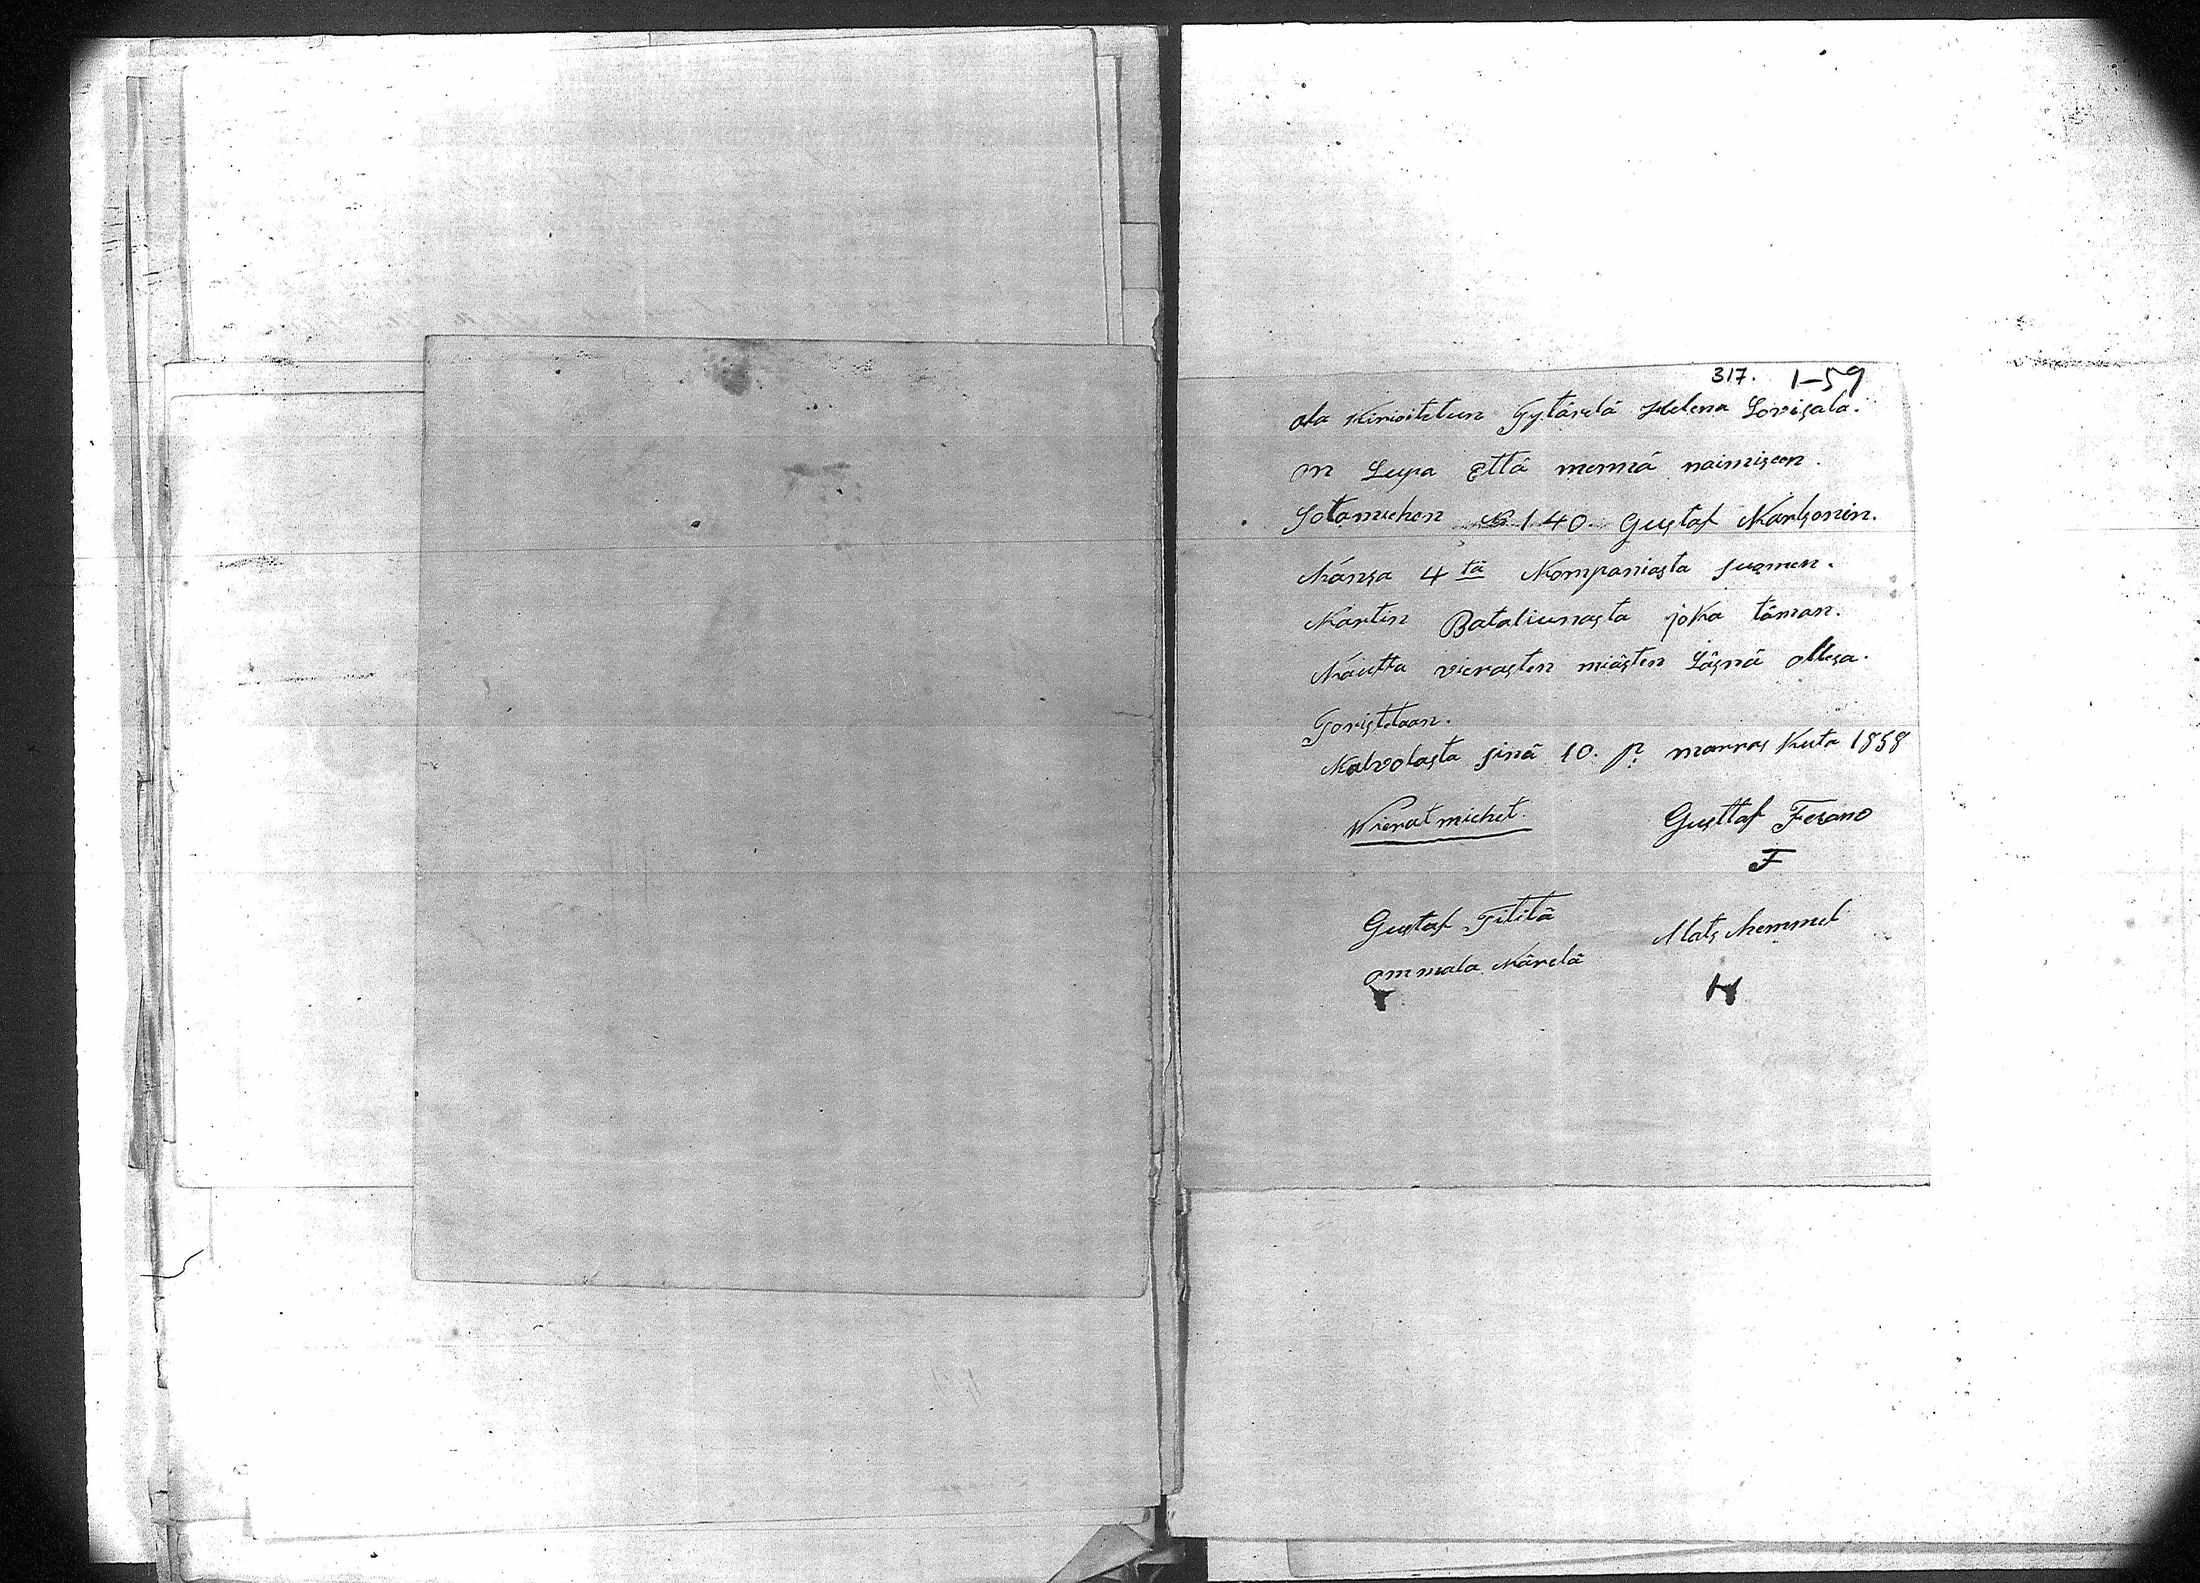 317. 1-59
ala Kirioitetun Tytärelä Helena Lovisala.
on Lupa Että mennä naimiseen.
Sotamiehen N 140. Gustaf Karlsonin.
Kánsa 4 tä Kompaniasta suomen.
Kártin Bataliunasta joka tämän.
Káutta vierasten miästen Läsnä ollesa.
Toristetaan.
Kalvolasta sinä 10. p. marras Kuta 1858
Vierat miehet.
Gusttaf Ferano
F
Gustaf Tititä
Mats Hemmel
ommala Kärelä
H